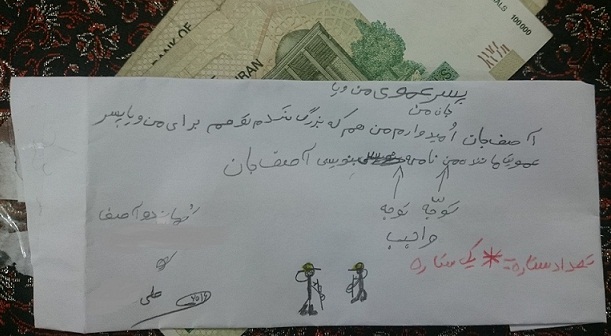 BANK OF
IRAN
RIALS 100000
پسر عموی من و یا
جان من
آصف جان امیدوارم من هم که بزرگ شدم تو هم برای من و یا پسر
عموی ما مثل من نامه بنویسی آصف جان
توجّه توجه
واجب
تعداد ستاره = * یک ستاره
علی